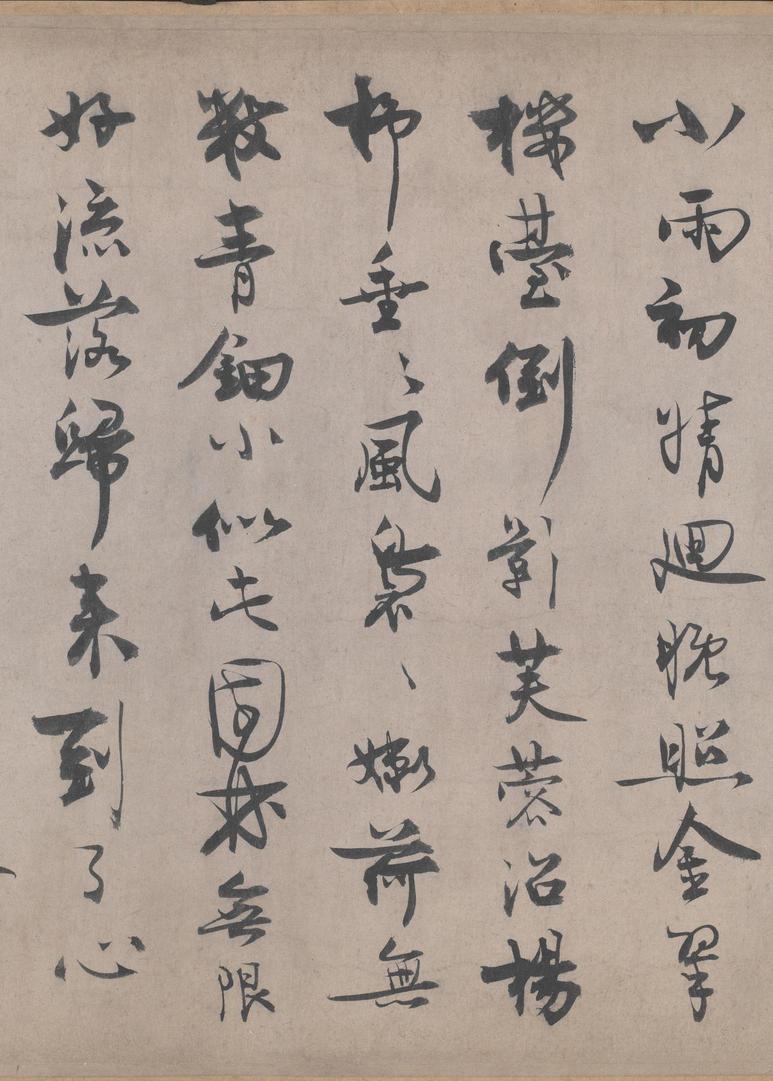 小雨初晴迴晚照金翠
樓臺倒影芙蓉沼楊
柳垂〻風裊〻嫩荷無
數青鈿小似此園林無限
好流落歸来到了心